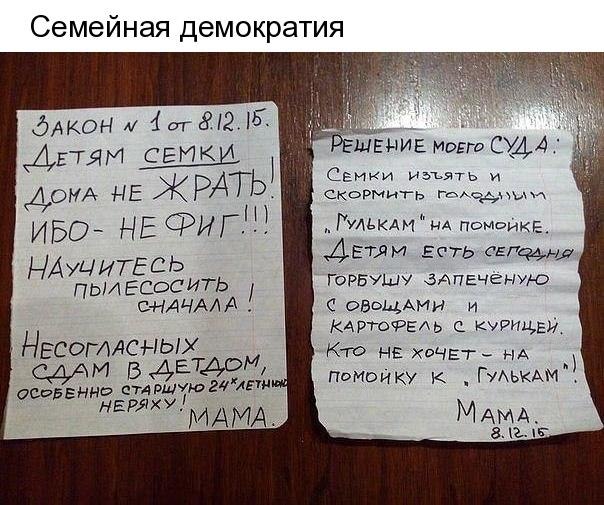 Семейная демократия
ЗАКОН N 1 от 8.12.15.
ДЕТЯМ СЕМКИ
ДОМА НЕ ЖРАТЬ!
ИБО - НЕ ФИГ!!!
НАУЧИТЕСЬ
ПЫЛЕСОСИТЬ
СНАЧАЛА!
НЕСОГЛАСНЫХ
СДАМ В ДЕТДОМ,
ОСОБЕННО СТАРШУЮ 24х ЛЕТНЮЮ
НЕРЯХУ!
МАМА.
РЕШЕНИЕ МОЕГО СУДА:
СЕМКИ ИЗЪЯТЬ И
СКОРМИТЬ ГОЛОДНЫМ
„ГУЛЬКАМ" НА ПОМОЙКЕ.
ДЕТЯМ ЕСТЬ СЕГОДНЯ
ГОРБУШУ ЗАПЕЧЁНУЮ
С ОВОЩАМИ И
КАРТОФЕЛЬ С КУРИЦЕЙ.
КТО НЕ ХОЧЕТ - НА
ПОМОЙКУ К „ГУЛЬКАМ"!
МАМА.
8.12.15.